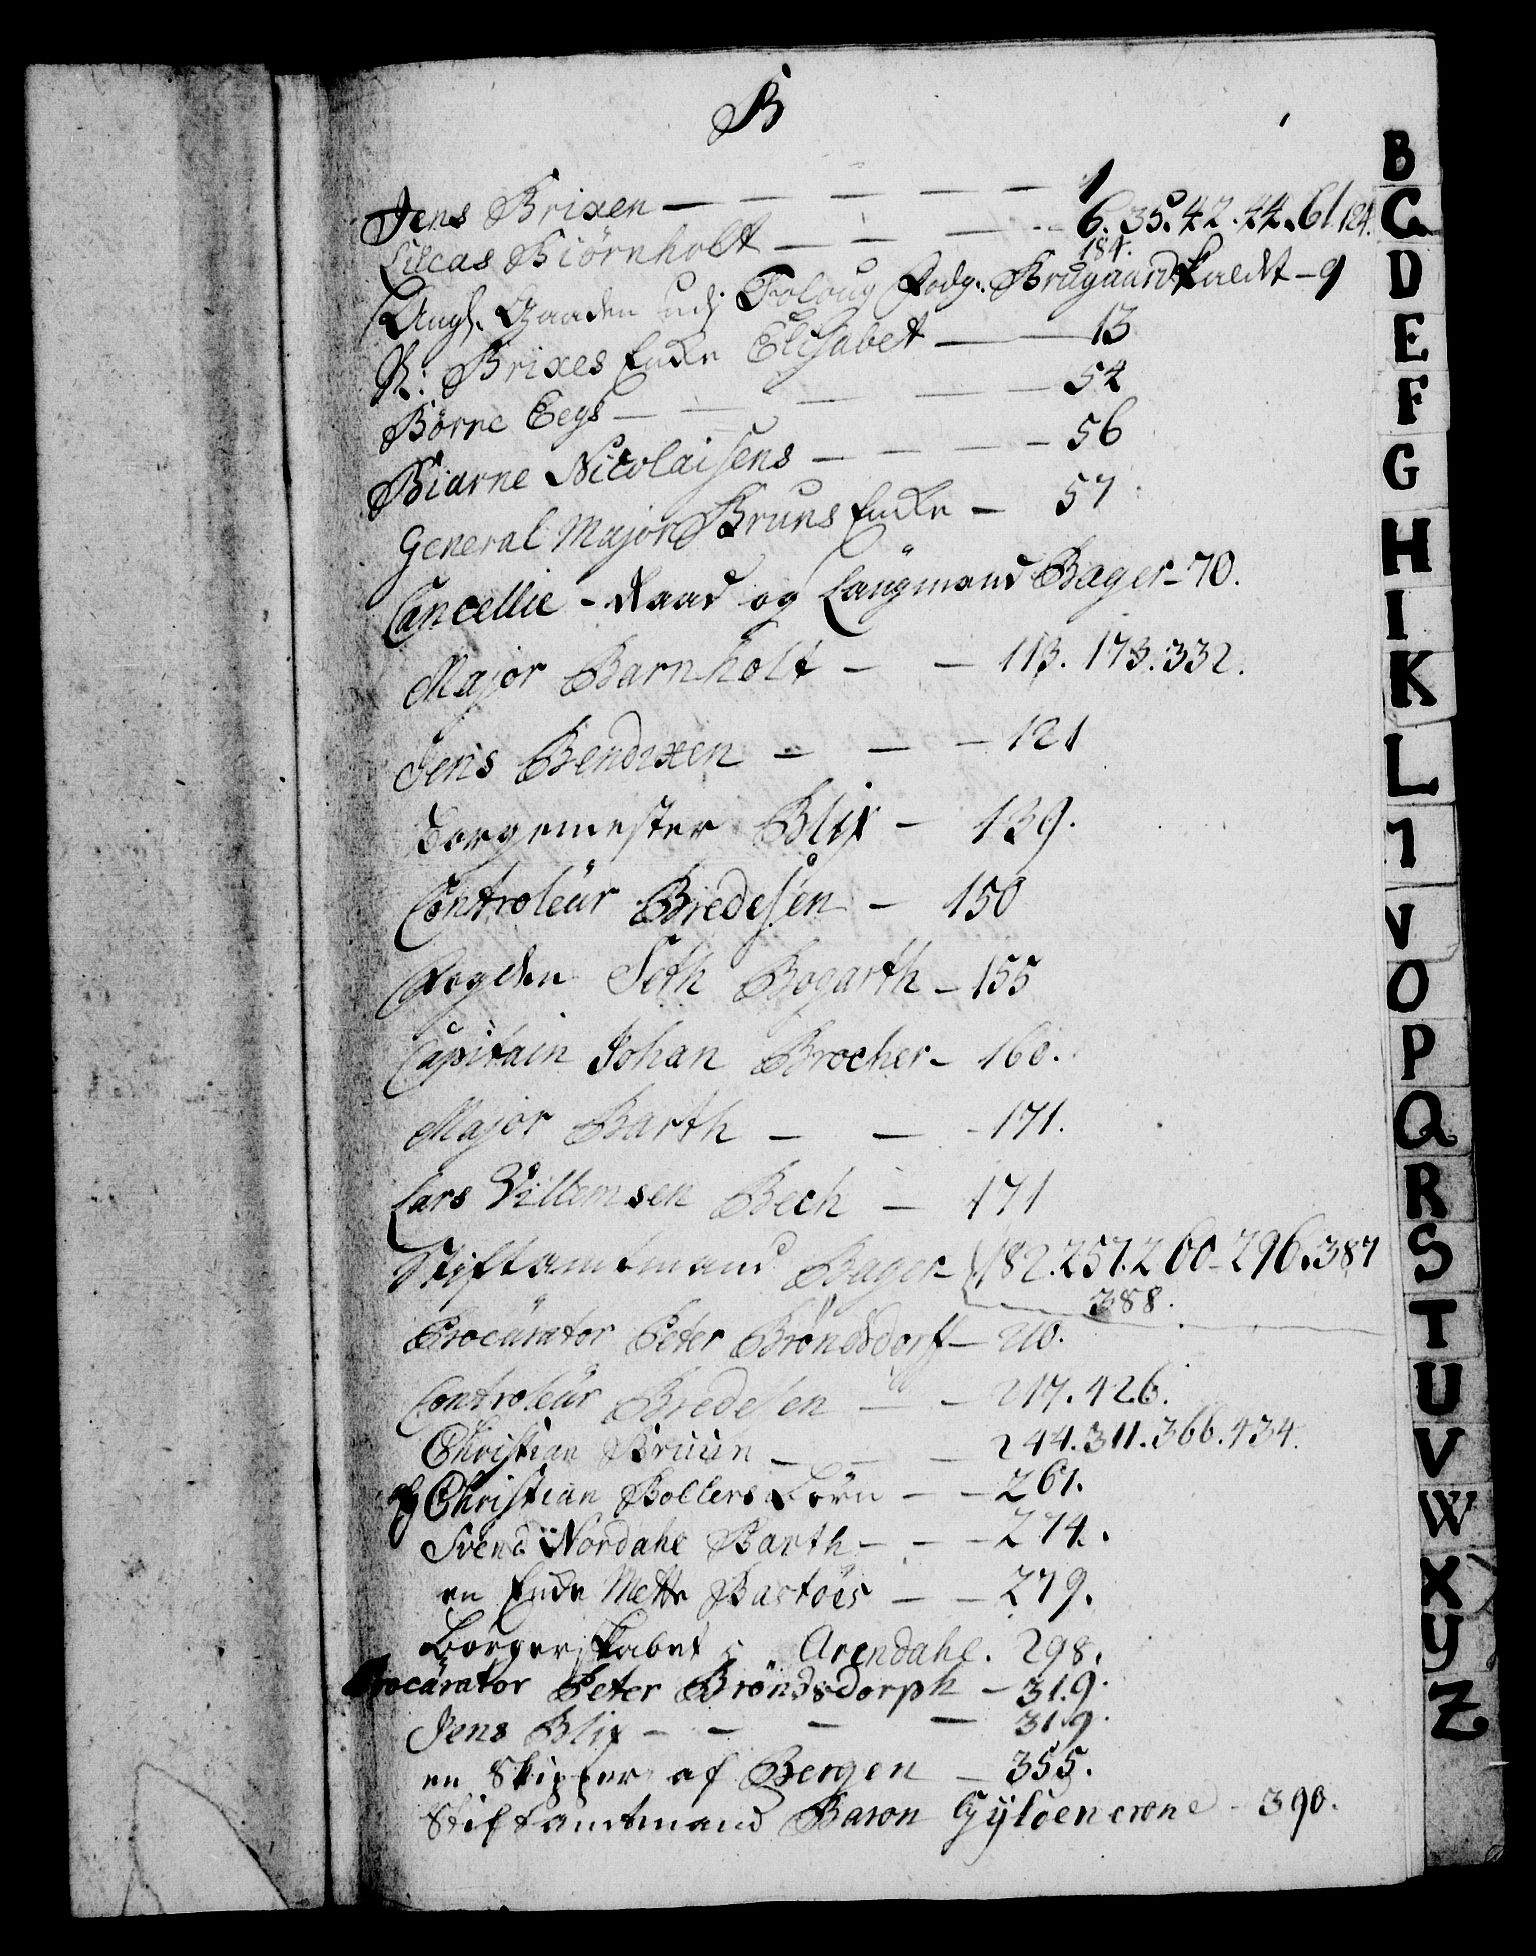 B
Jens Brixen — — — — — — 1
Lucas Biörnholt — — — — 6. 35. 42. 44. 61. 124.
184.
Ang. Gaarden udj Foloug Fodg. Brugaard kaldt — 9
N: Brixes Encke Elisabet — — 13
Börne Eegs — — — — 54
Biarne Nicolaisens — — — — 56
General Major Bruns Encke — 57
Cancellie-Raad og Laugmand Bager — 70.
Major Barnholt — — 113. 173. 332.
Jens Bendixen — — — 121
Borgemester Blix — 139.
Controleür Bredesen — 150
Fogden Seth Bogarth — 155
Capitain Johan Brocher — 160.
Major Barth — — — 171.
Lars Villemsen Bech — 171
Stiftamtmand Bager — 182. 257. 260 — 296. 387
388.
Procürator Peter Bröndsdorff — 210.
Controleür Bredesen — — 217. 426.
Christian Bruun — — — 244. 311. 366. 434.
Christian Bollers Börn — — 261.
Svend Nordahl Barth — — — 274.
en Encke Mette Bastöes — — 279.
Borgerskabet i Arendahl. 298.
Procürator Peter Bröndsdorph — 319.
Jens Blix — — — — 319.
en Skipper af Bergen — 355.
Stiftamtmand Baron Gyldencrone — 390.
B
C
D
E
F
G
H
I
K
L
M
N
O
P
Q
R
S
T
U
V
W
X
Y
Z